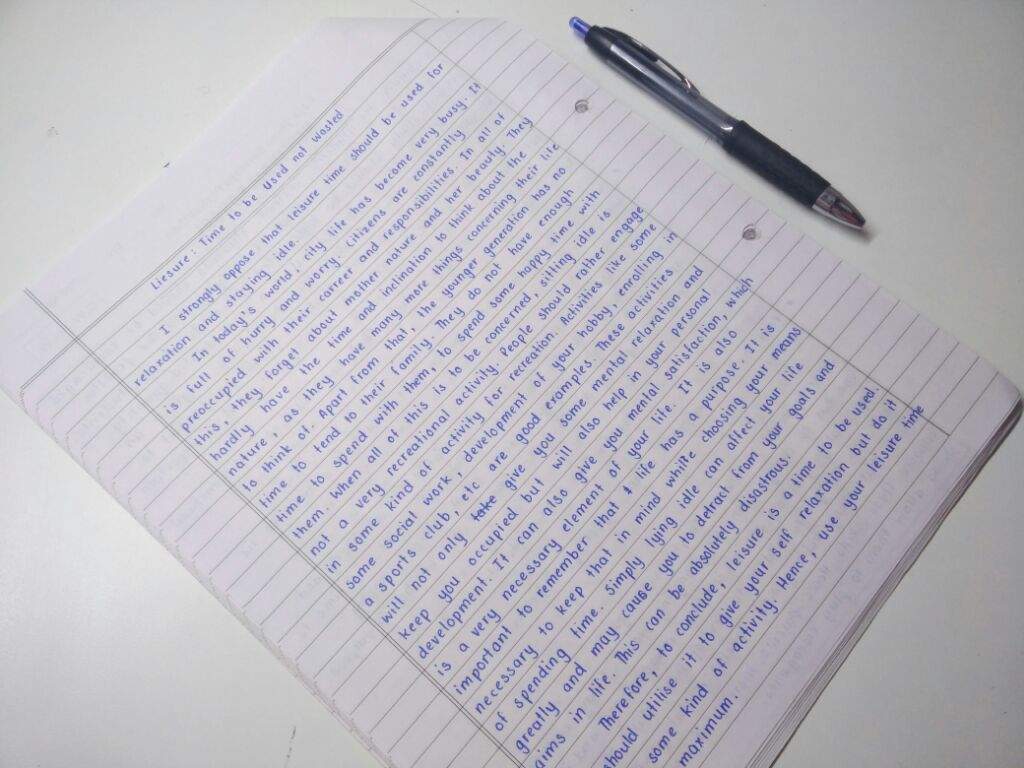 Liesure: Time to be used not wasted
I strongly oppose that leisure time should be used for
relaxation and staying idle.
In today's world, city life has become very busy. It
is full of hurry and worry. Citizens are constantly
preoccupied with their carrer and responsibilities. In all of
this, they forget about mother nature and her beauty. They
hardly have the time and inclination to think about the
nature, as they have many more things concerning their life
to think of. Apart from that, the younger generation has no
time to tend to their family. They do not have enough
time to spend with them, to spend some happy time with
them. When all of this is to be concerned, sitting idle is
not a very recreational activity. People should rather engage
in some kind of activity for recreation. Activities like some
some social work, development of your hobby, enrolling in
a sports club, etc are good examples. These activities
will not only take give you some mental relaxation and
keep you occupied but will also help in your personal
development. It can also give you mental satisfaction, which
is a very necessary element of your life. It is also
important to remember that life has a purpose. It is
necessary to keep that in mind while choosing your means
of spending time. Simply lying idle can affect your life
greatly and may cause you to detract from your goals and
aims in life. This can be absolutely disastrous.
Therefore, to conclude, leisure is a time to be used.
should utilise it to give your self relaxation but do it
some kind of activity. Hence, use your leisure time
maximum.